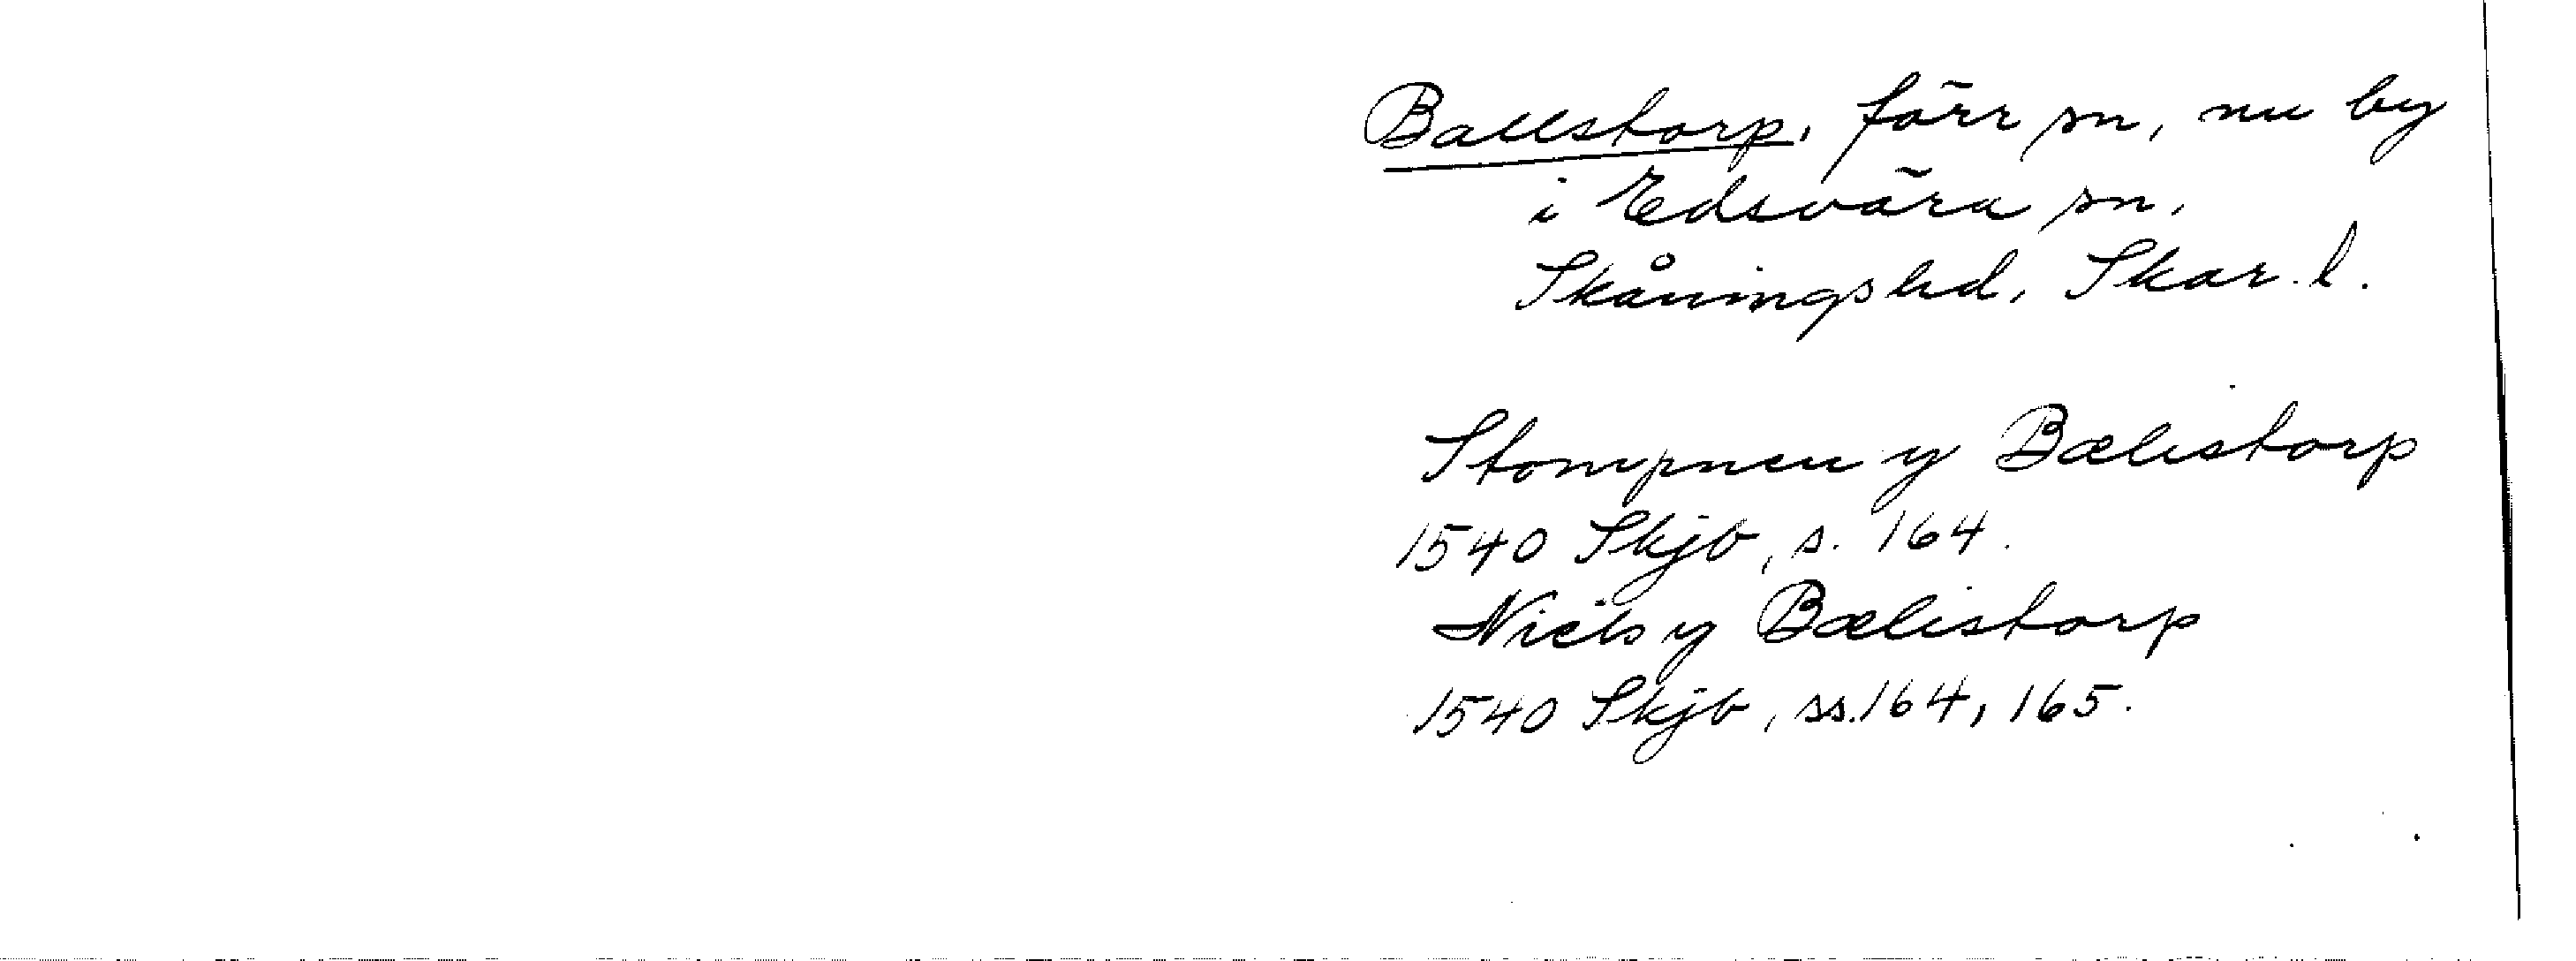 Ballstorp, förr sn, nu by
i Edsvära sn,
Skånings hd, Skar. l.
Stompnen y Bælistorp
1540 Skjb, s. 164.
Niels y Bælistorp
1540 Skjb, ss. 164, 165.